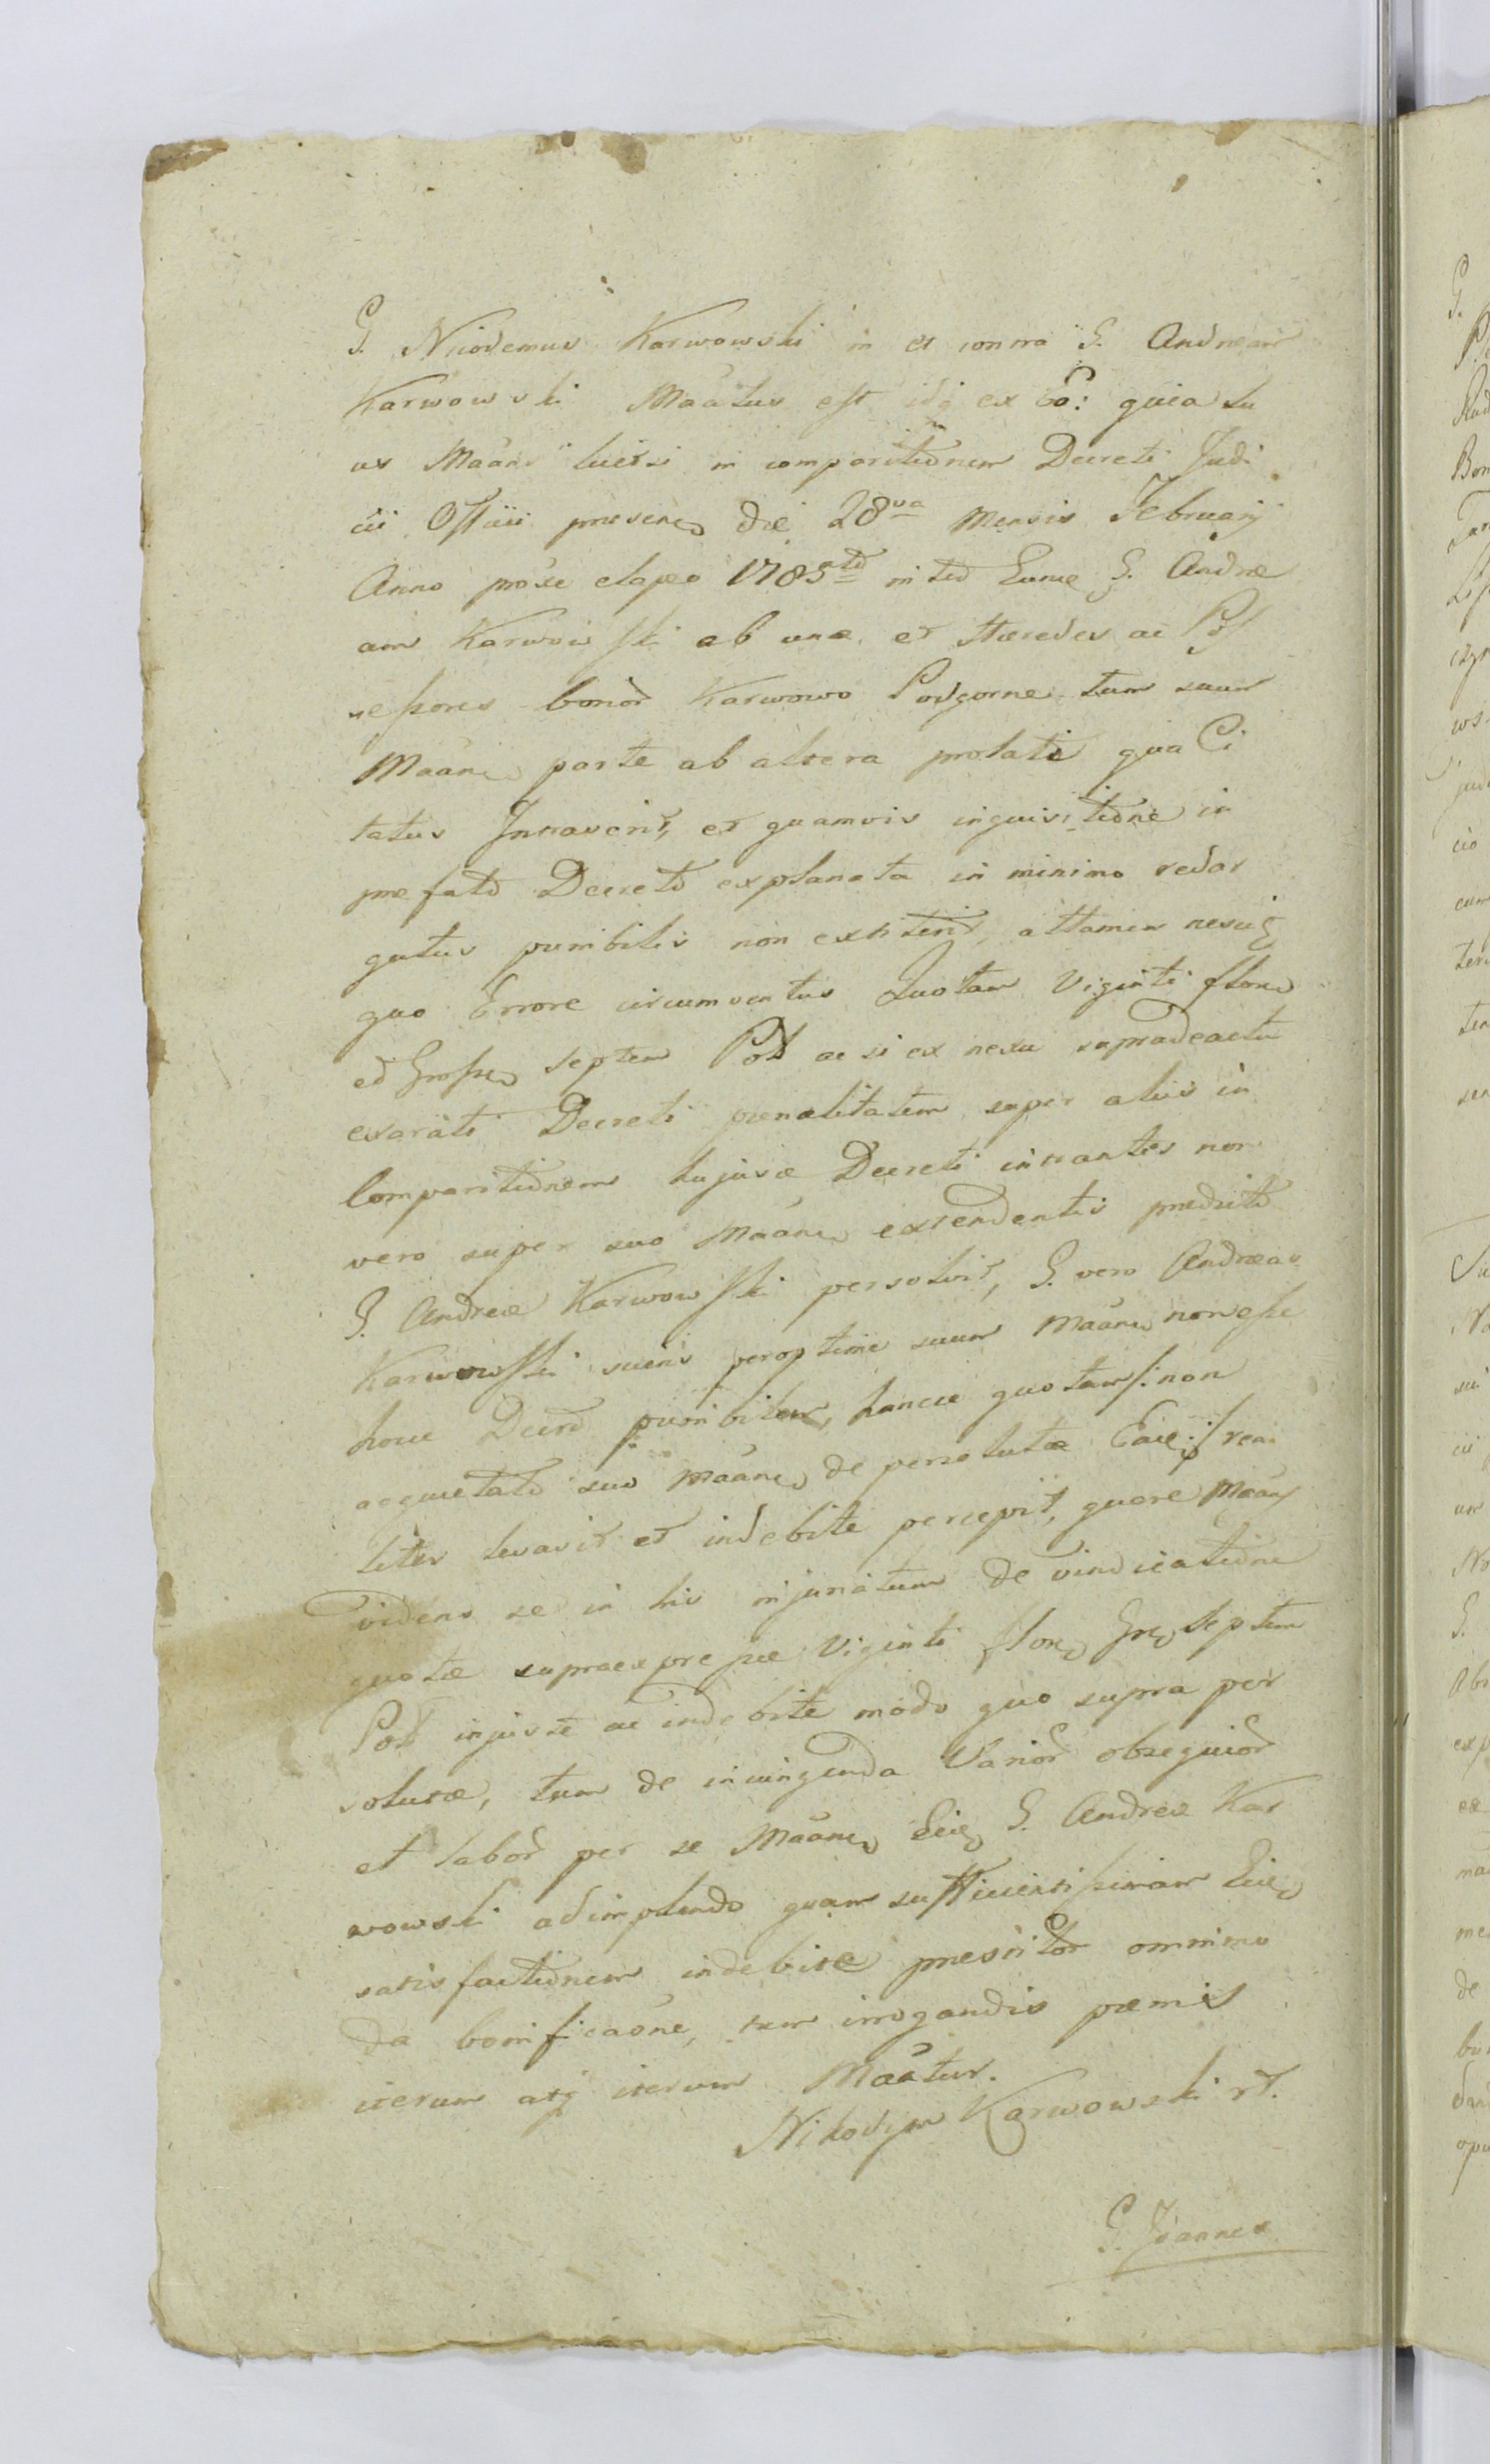 G. Nicodemus Karwowski in et contra G. Andream
Karwowski Maãtus est idq ex eo: quia lu
us Maãns licet si in comparitionem Decreti Judi
cii Offcii presenc die 28va mensis Februarij
Anno proxe elapso 1785to inter Eunc G. Andre
am Karwowski ab una et Hæredes ac Pos
sessores bonor Karwowo Podgorne tum suum
Maãnc parte ab altera prolati qua Ci
tatus Intraverit, et quamvis inquisitione in
prefato Decreto explanata in minimo redar
gutus punibilis non extiterit, attamen nescio
quo Errore circumventus Quotam Viginti flore
et Grosse septem Pol ac si ex nexu supradeactu
exarati Decreti pœnalitatem super aliis in
Comparitionem hujusce Decreti intrantes non
vero super suo Maãnc extendentis predicto
G. Andreæ Karwowski persolvit, G. vero Andreas
Karwowski sciens peroptime suum Maãnc non esse
hocce Decreto punibilem, hancce quotam /: non
acquietato suo Maãnc de persolutæ Eade :/ rea
liter levavit et indebite percepit, quare Maãns
videns se in his injuriatum de vindicatione
quotæ supraexpressæ Viginti flore Gre septem
Pol injuste ac indebite modo quo supra per
solutæ, tum de invingenda Varior obsequior
et labor per se Maãnc Ecie G. Andreæ Kar
wowski adimplendo quam sufficientissimam Eie
satisfactionem indebite prescritor omnimo
da bonificaone, tum irrogandis pœnis
iterum atq iterum Maãtur.
Nikodym Karwowski rt.
G. Joannes